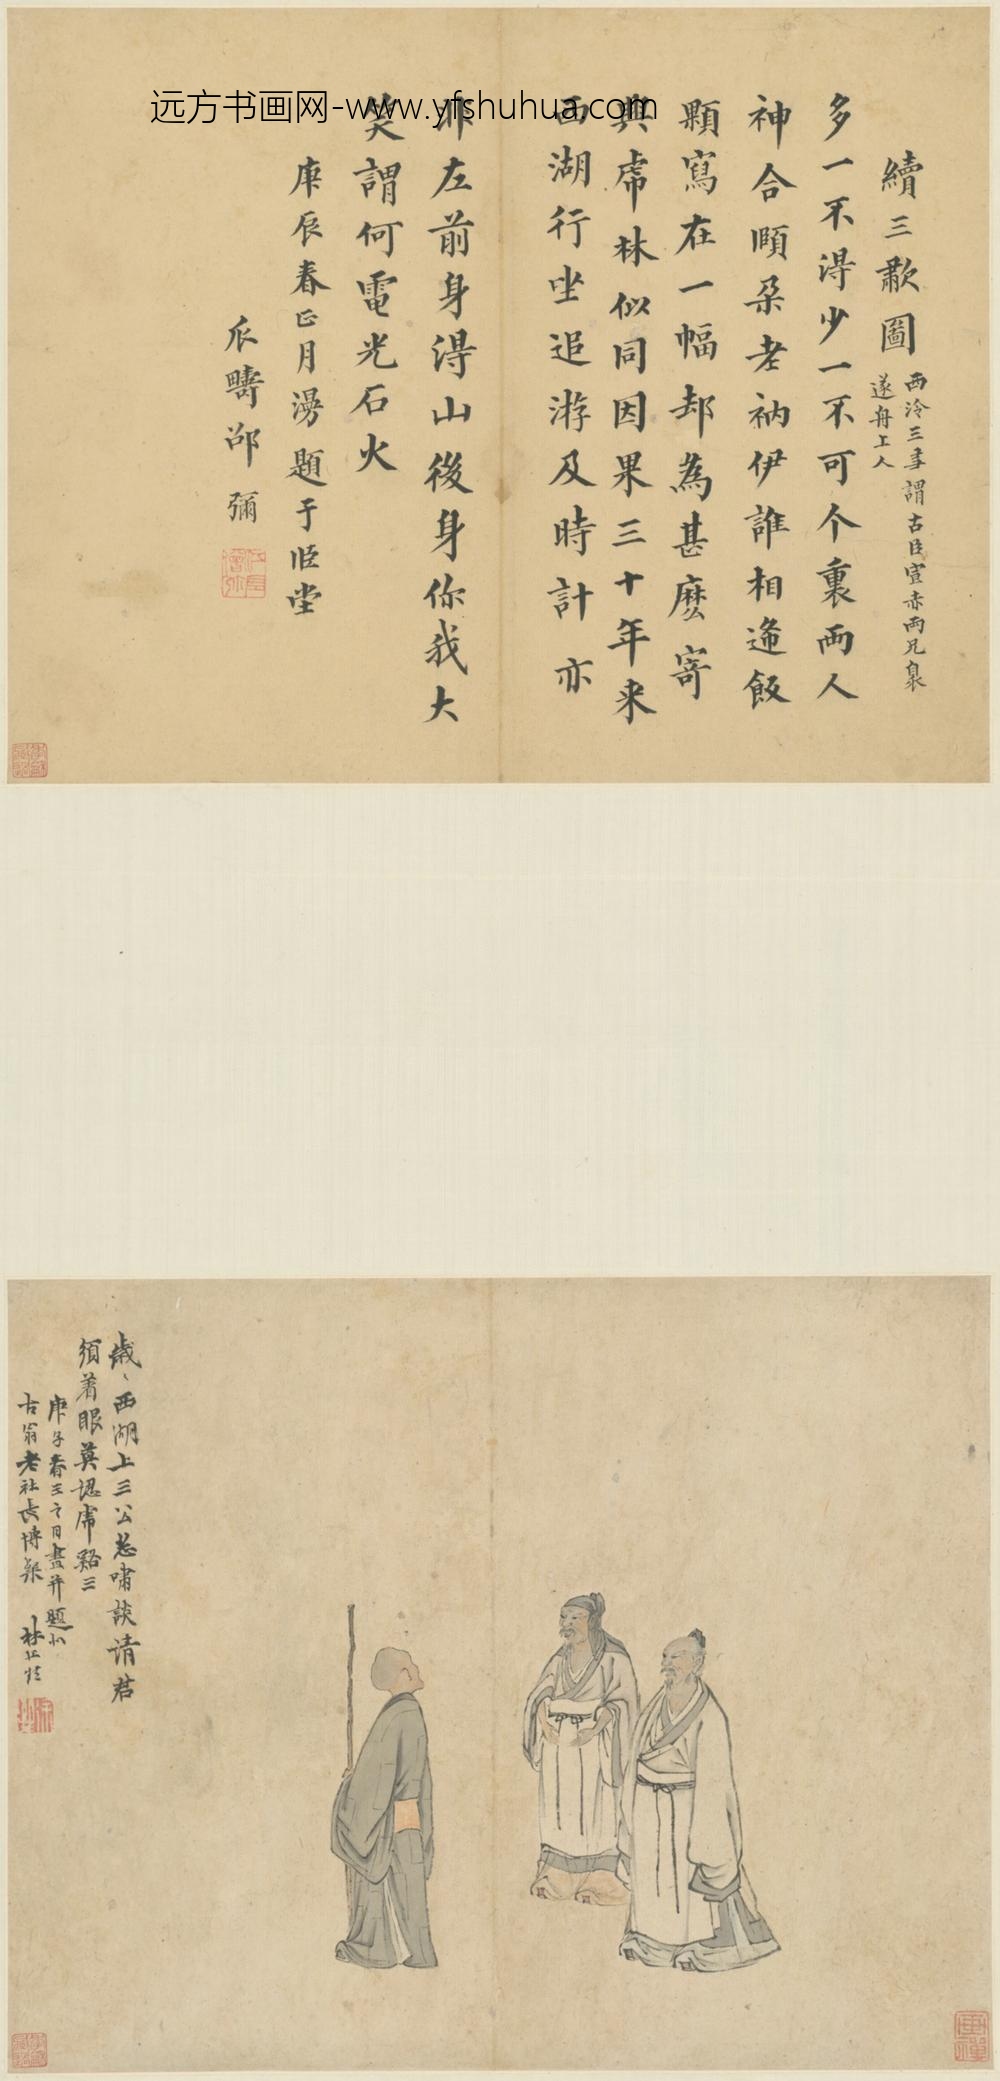 远方书画网-www.yfshuhua.com
續三歗圖
西泠三謂古臣宣赤兩兄臮
遂舟上人
多一不得少一不可个裏兩人
神合頤朵老衲伊誰相逢飯
顆寫在一幅却為甚麼寄
與虎林似同因果三十年来
西湖行坐追游及時計亦
非左前身得山後身你我大
笑謂何電光石火
庚辰春正月漫題于頤堂
瓜疇邵彌
歲〻西湖上三公恣嘯談请君
須着眼莫認虎谿三
庚子春三之日畫并題似
古翁老社長博粲